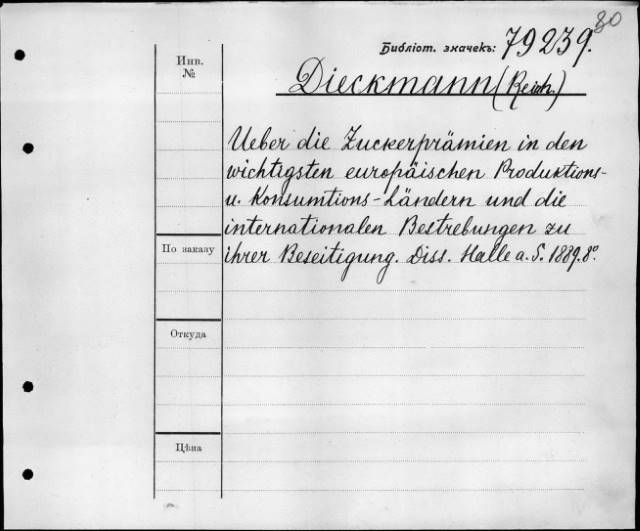 80
Библіот. значекъ: 79239.
Инв.
№
Dieckmann (Reinh.)
Ueber die Zuckerprämien in den
wichtigsten europäischen Produktions-
u. Konsumtions-Ländern und die
internationalen Bestrebungen zu
По заказу
ihrer Beseitigung. Diss. Halle a. S. 1889. 8º.
Откуда
Цѣна